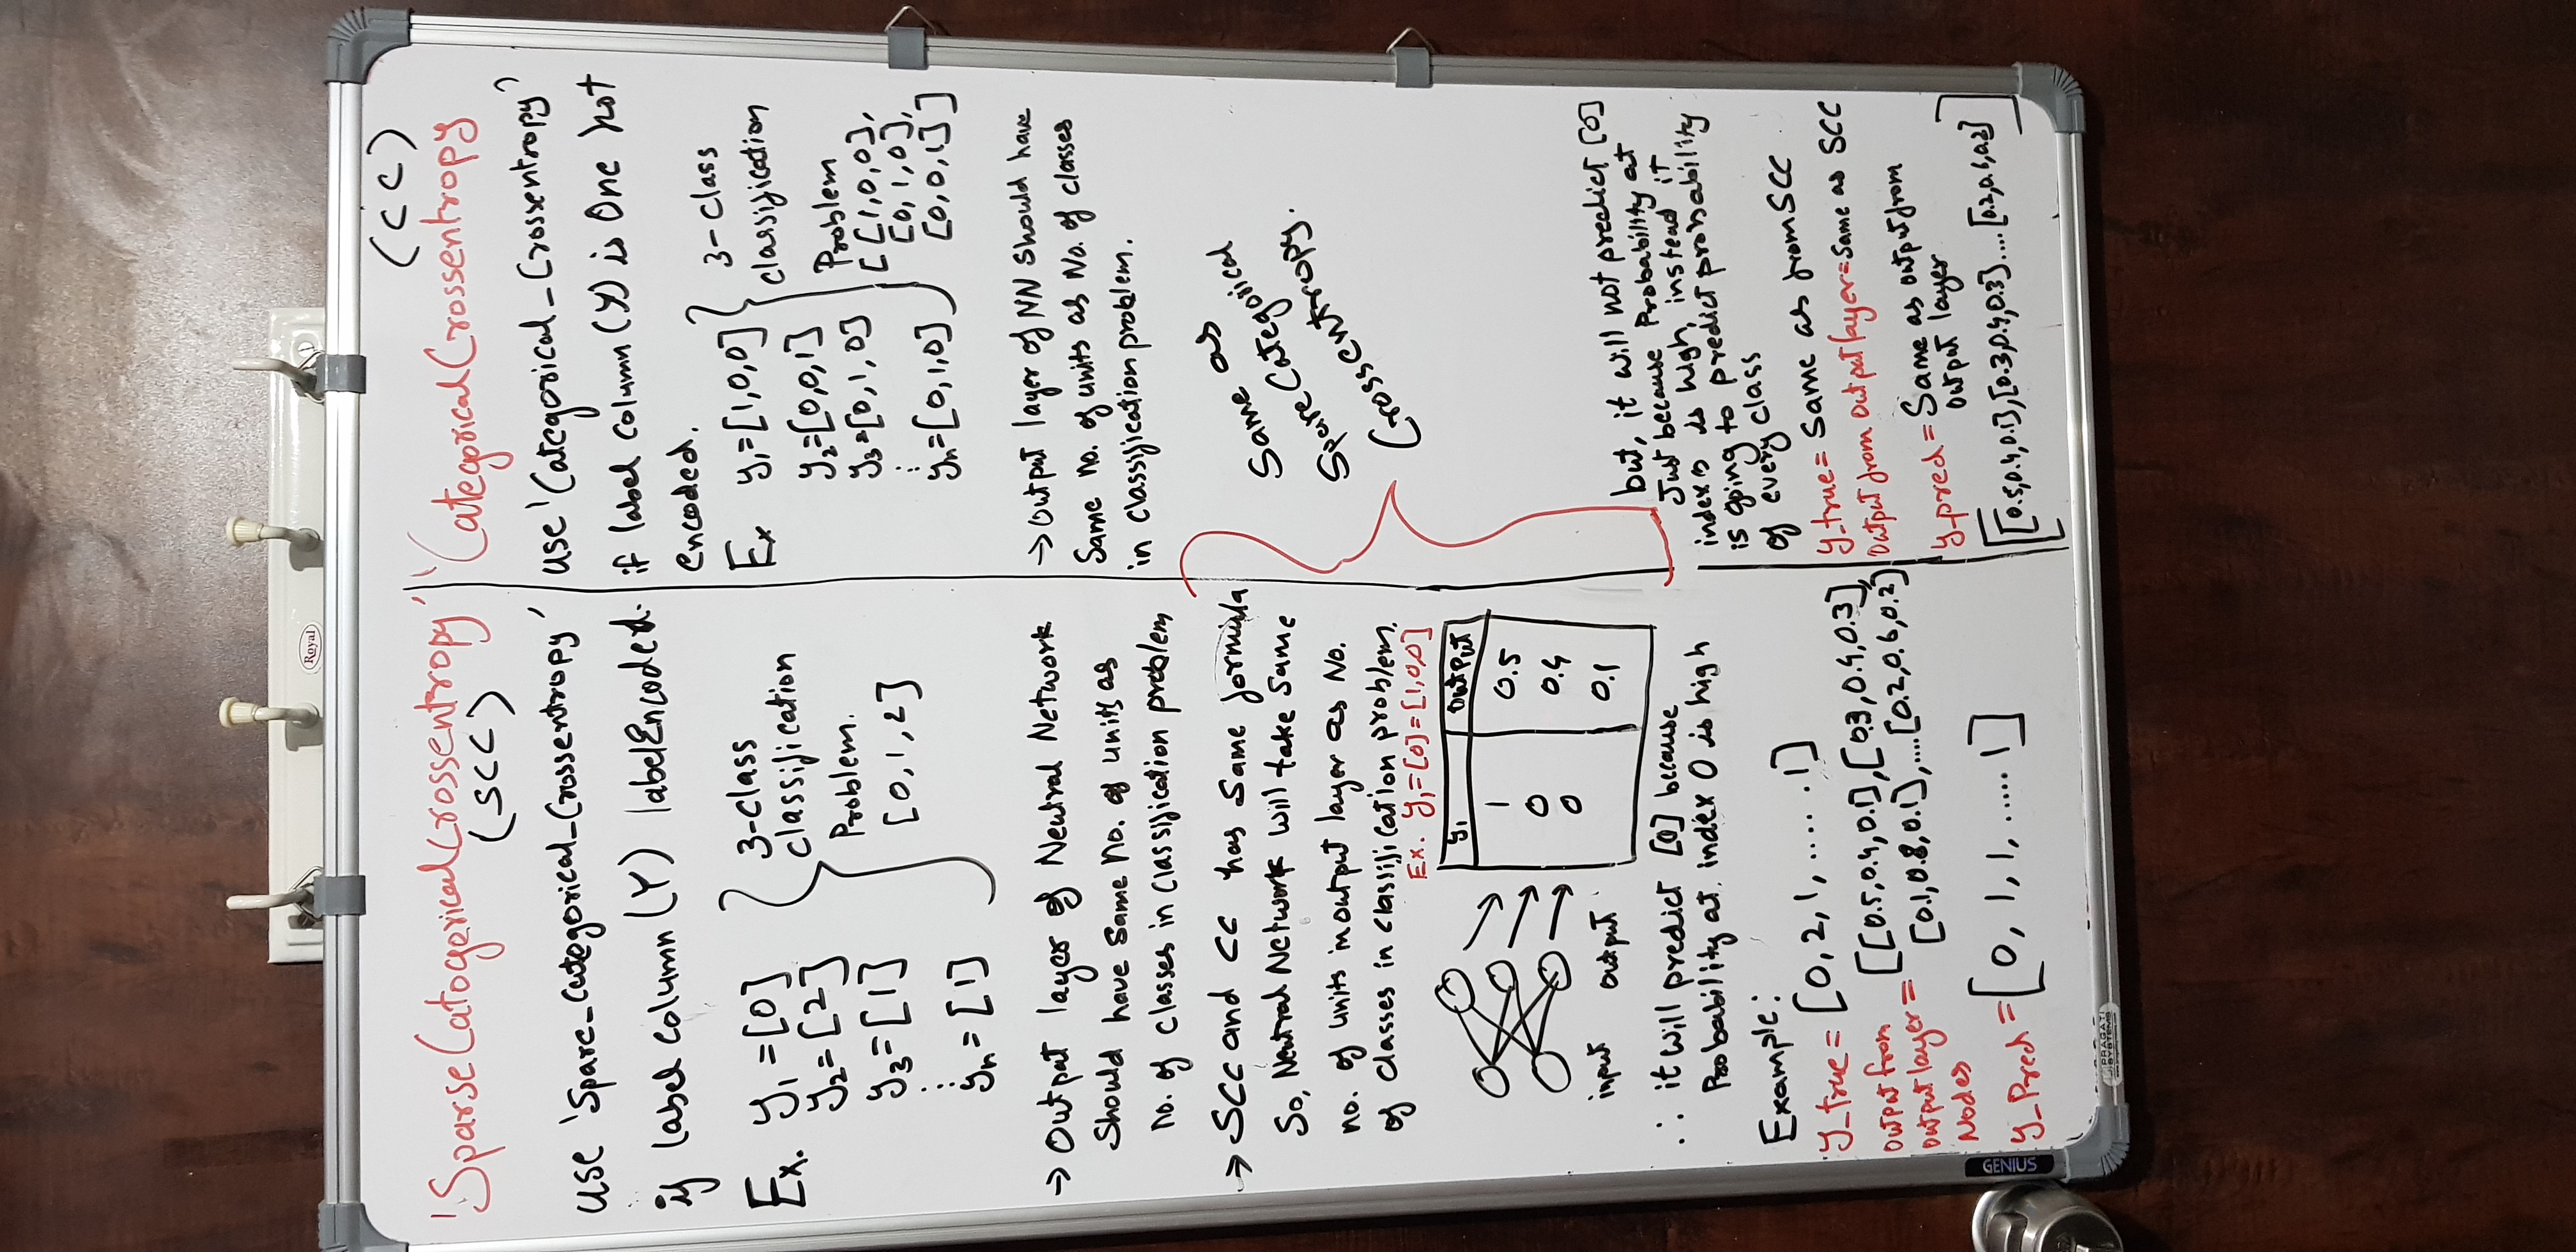 Royal
'SparseCatogoricalCrossentropy'
(SCC)
use 'Sparc_Categorical_Crossentropy'
if label column (Y) labelEncoded.
Ex. y1 = [0]
y2 = [2]
y3 = [1]
⋮
yn = [1]
3-class
classification
Problem.
[0, 1, 2]
→ Output layer of Neutral Network
Should have Same No. of units as
no. of classes in classification problem
→ SCC and CC has Same formula
So, Neutral Network will take Same
no. of units in output layer as No.
of classes in classification problem.
Ex. y1=[0]=[1,0,0]
y1 output
1 0.5
0 0.4
0 0.1
input output
∴ it will predict [0] because
Probability at index 0 is high
Example:
y_true = [0, 2, 1, ...... 1]
Output from
output layer =
Nodes
[[0.5,0.4,0.1],[0.3,0.4,0.3],
[0.1,0.8,0.1],....[0.2,0.6,0.2]
y_Pred = [0, 1, 1, ..... 1]
(CC)
'CategoricalCrossentropy
use 'Categorical_Crossentropy'
if label column (Y) is One hot
encoded.
Ex y1=[1,0,0]
y2=[0,0,1]
y3=[0,1,0]
⋮
yn=[0,1,0]
3-class
classification
Problem
[[1,0,0],
[0,1,0],
[0,0,1]]
→ Output layer of NN Should have
Same no. of units as No. of classes
in classification problem.
Same as
SpareCategorical
Crossentropy.
but, it will not predict [0]
Just because Probability at
index is high, instead it
is going to predict probability
of every class
y_true = Same as from SCC
Output from Output layer = Same as SCC
y_pred = Same as output from
output layer
[[0.5,0.4,0.1],[0.3,0.4,0.3]....[0.2,0.6,0.2]]
GENIUS
PRAGATI
SYSTEMS